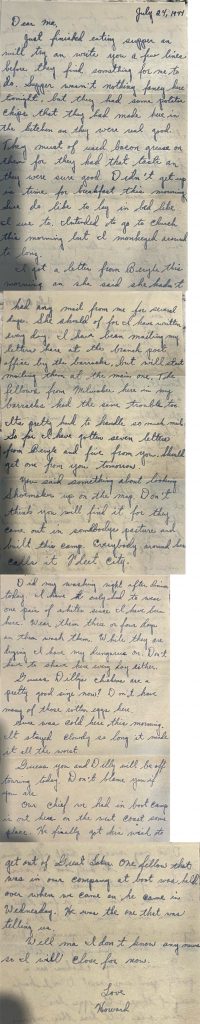 July 24, 1944
Dear ma,
Just finished eating supper an
will try an write you a few lines
before they find something for me to
do. Supper wasn't nothing fancy here
tonight, but they had some potatoe
chips that they had made here in
the kitchen an they were real good.
They must of used bacon grease or
them for they had that taste an
they were sure good. Didn't get up
in time for breakfast this morning
sure do like to lay in bed like
I use to. Intended to go to church
this morning but I monkeyed around
to long.
I got a letter from Beryle this
morning an she said she hadn't
had any mail from me for several
days. She should of for I have written
every day. I have been mailing my
letters here at the branch post
office by the barracks, but will start
mailing them at the main one. The
fellows from Milwaukee here in my
barracks had the same trouble too.
Its pretty hard to handle so much mail
So far I have gotten seven letters
from Beryle and five from you. Should
get one from you tomorrow.
You said something about looking
Shoemaker up on the map. Don't
think you will find it for they
came out in somebodys pasture and
built this camp. Everybody around here
calls it Fleet City.
Did my washing right after dinner
today. I have only had to wear
one pair of whites since I have been
here. Wear them three or four days
an then wash them. While they are
drying I have my dungarees on. Don't
have to shave here every day either.
Guess Dillys chickens are a
pretty good size now? Don't have
many of those rotten eggs here.
Sure was cold here this morning.
It stayed cloudy so long it made
it all the worst.
Guess you and Dilly will be off
touring today. Don't blame you if
you are
Our chief we had in boot camp
is out here on the west coast some
place. He finally got his wish to
get out of Great Lakes. One fellow that
was in our company at boot was held
over when we came an he came in
Wednesday. He was the one that was
telling us.
Well ma I don't know any more
so I will close for now.
Love
Howard